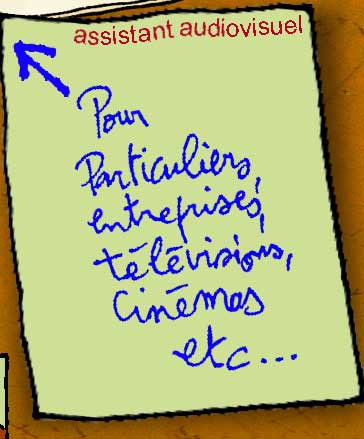 assistant audiovisuel
Pour
Particuliers,
entreprises,
télévisions,
Cinémas
etc...